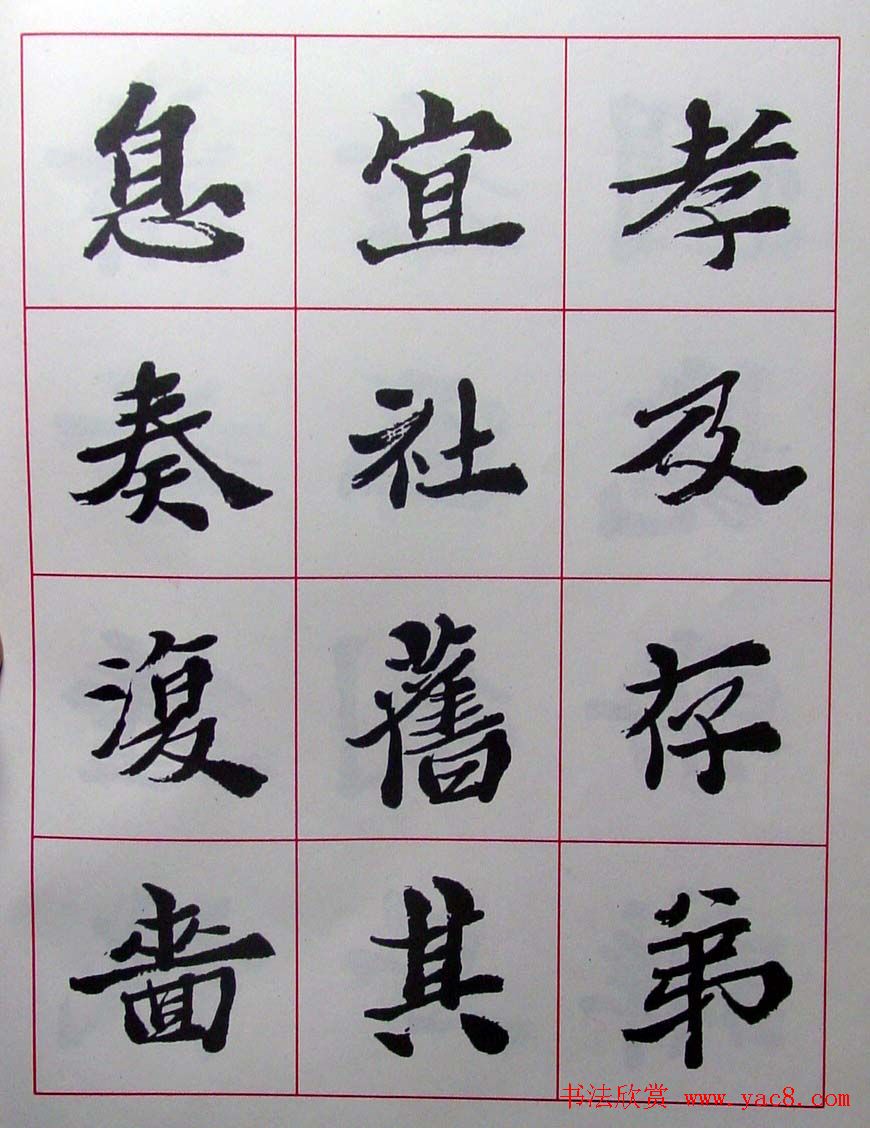 孝及存弟
宜社舊其
息奏復嗇
书法欣赏 www.yac8.com